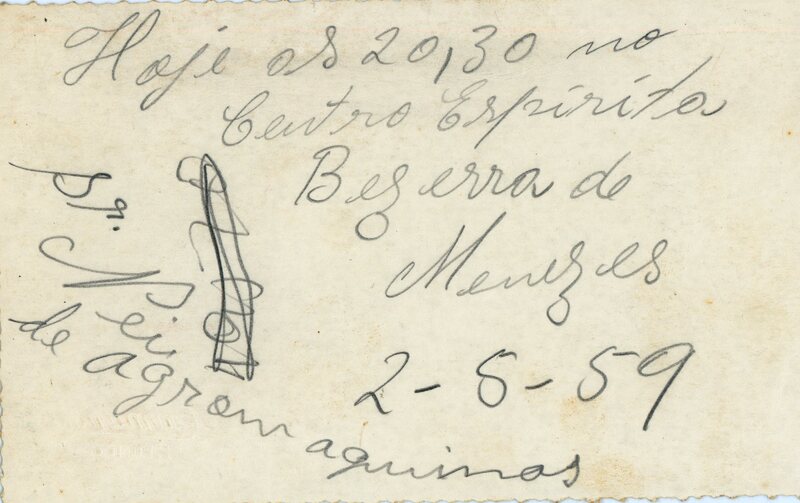 Hoje as 20,30 no
Centro Espírita
Bezerra de
Menezes
2-5-59
Sr. Nei
de agrom
aquinos